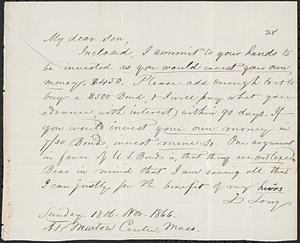 My dear Son,
Inclosed, I commit to your hands to
be invested as you would invest your own
money, $450. Please add enough bot to
buy a $500 Bond, & I will pay what you
advance, with interest, within 90 days. If
you would invest your own money in
7/30 Bonds, invest mine so. One argument
in favor of U.S. Bonds is, that they are not taxed.
Bear in mind that I am saving all that
I can justly for the benefit of my heirs.
D Long
Sunday 18th. Nov. 1866.
At Newton Centre, Mass.